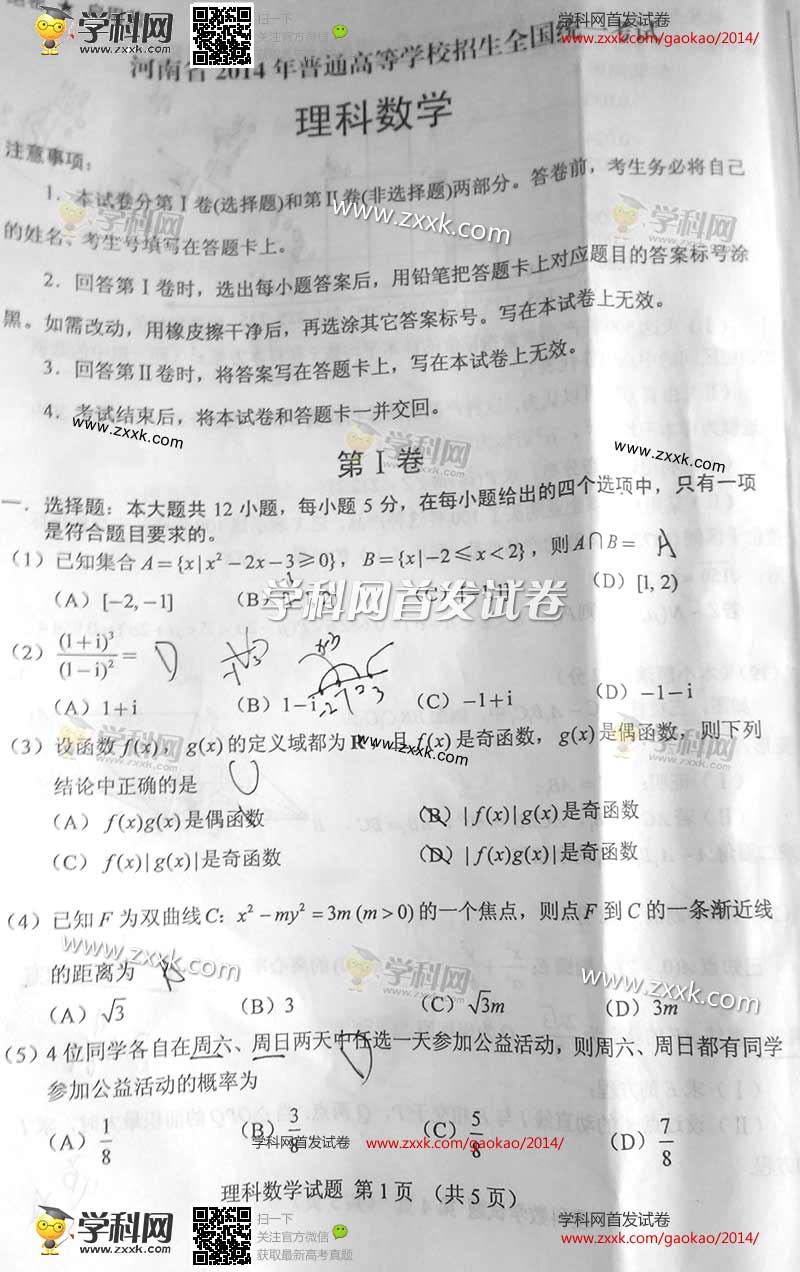 学科网
www.zxxk.com
扫一下
关注官方微信
学科网首发试卷
www.zxxk.com/gaokao/2014/
河南省 2014 年普通高等学校招生全国统一考试
理科数学
注意事项:
1. 本试卷分第Ⅰ卷(选择题)和第Ⅱ卷(非选择题)两部分。答卷前,考生务必将自己
的姓名、考生号填写在答题卡上。
2. 回答第Ⅰ卷时,选出每小题答案后,用铅笔把答题卡上对应题目的答案标号涂
黑。如需改动,用橡皮擦干净后,再选涂其它答案标号。写在本试卷上无效。
3. 回答第Ⅱ卷时,将答案写在答题卡上,写在本试卷上无效。
4. 考试结束后,将本试卷和答题卡一并交回。
第Ⅰ卷
一. 选择题:本大题共 12 小题,每小题 5 分,在每小题给出的四个选项中,只有一项
是符合题目要求的。
(1) 已知集合 A={x|x²−2x−3≥0}, B={x|−2≤x<2},则A∩B= A
(A) [-2,-1] (B) (C) (D) [1,2)
学科网首发试卷
(2) (1+i)³/(1−i)² = D
(A) 1+i (B) 1−i (C) −1+i (D) −1−i
(3) 设函数 f(x), g(x) 的定义域都为 R,且 f(x) 是奇函数, g(x) 是偶函数,则下列
结论中正确的是
(A) f(x)g(x) 是偶函数 (B) |f(x)|g(x) 是奇函数
(C) f(x)|g(x)| 是奇函数 (D) |f(x)g(x)| 是奇函数
(4) 已知 F 为双曲线 C: x²−my²=3m(m>0) 的一个焦点,则点 F 到 C 的一条渐近线
的距离为 A
(A) √3 (B) 3 (C) √3m (D) 3m
(5) 4 位同学各自在周六、周日两天中任选一天参加公益活动,则周六、周日都有同学
参加公益活动的概率为
(A) 1/8 (B) 3/8 (C) 5/8 (D) 7/8
学科网首发试卷 www.zxxk.com/gaokao/2014/
理科数学试题 第 1 页 (共 5 页)
学科网
www.zxxk.com
扫一下
关注官方微信
获取最新高考真题
学科网首发试卷
www.zxxk.com/gaokao/2014/